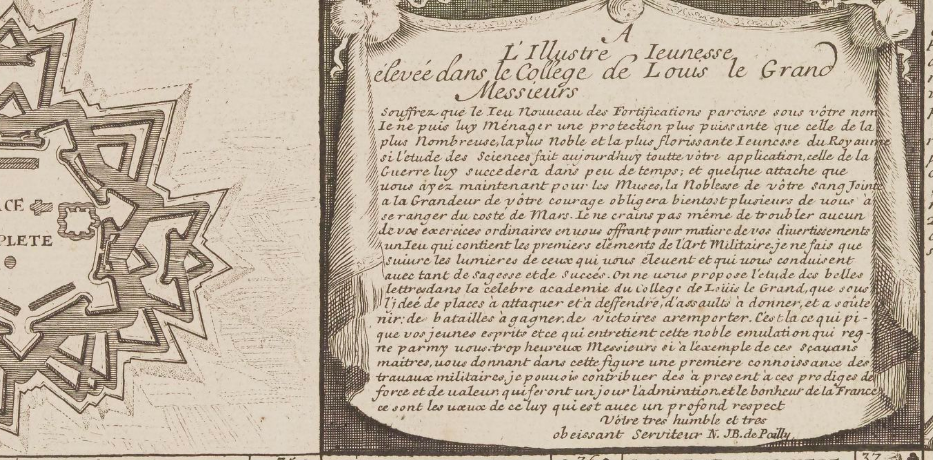 A
L'Illustre Ieunesse
élevéé dans le College de Louis le Grand
Messieurs
Souffrez que le Ieu Nouveau des Fortifications paroisse sous vôtre nom
Ie ne puis luy Ménager une protection plus puissante que celle de la
plus Nombreuse, la plus Noble et la plus florissante Ieunesse du Royaume
si l'étude des Sciences fait aujourdhuy toutte vôtre application, celle de la
Guerre luy succedera dans peu de temps; et quelque attache que
vous ayez maintenant pour les Muses, la Noblesse de vôtre sang Jointe
a la Grandeur de vôtre courage obligera bientost plusieurs de vous a
se ranger du coste de Mars. Ie ne crains pas méme de troubler aucun
de vos éxercices ordinaires en vous offrant pour matiere de vos divertissements
un Ieu qui contient les premiers eléments de l'Art Militaire, je ne fais que
suivre les lumieres de ceux qui vous élevent et qui vous conduisent
avec tant de sagesse et de succés. On ne vous propose l'etude des belles
lettres dans la célebre academie du College de Loüis le Grand, que sous
l'ideé de places a attaquer et a deffendre, d'assauts a donner, et a soute
nir: de batailles a gagner, de victoires a remporter. C'est la ce qui pi-
que vos jeunes esprits et ce qui entretient cette noble emulation qui reg-
ne parmy vous. trop heureux Messieurs si a l'exemple de ces sçavans
maitres, vous donnant dans cette figure une premiere connoissance des
travaux militaires, je pouvois contribuer dés a present a ces prodiges de
force et de valeur qui feront un jour l'admiration, et le bonheur de la France
ce sont les vœux de ce luy qui est avec un profond respect
Vôtre tres humble et tres
obeissant Serviteur N. JB. de Poilly
ACE
PLETE
36
37